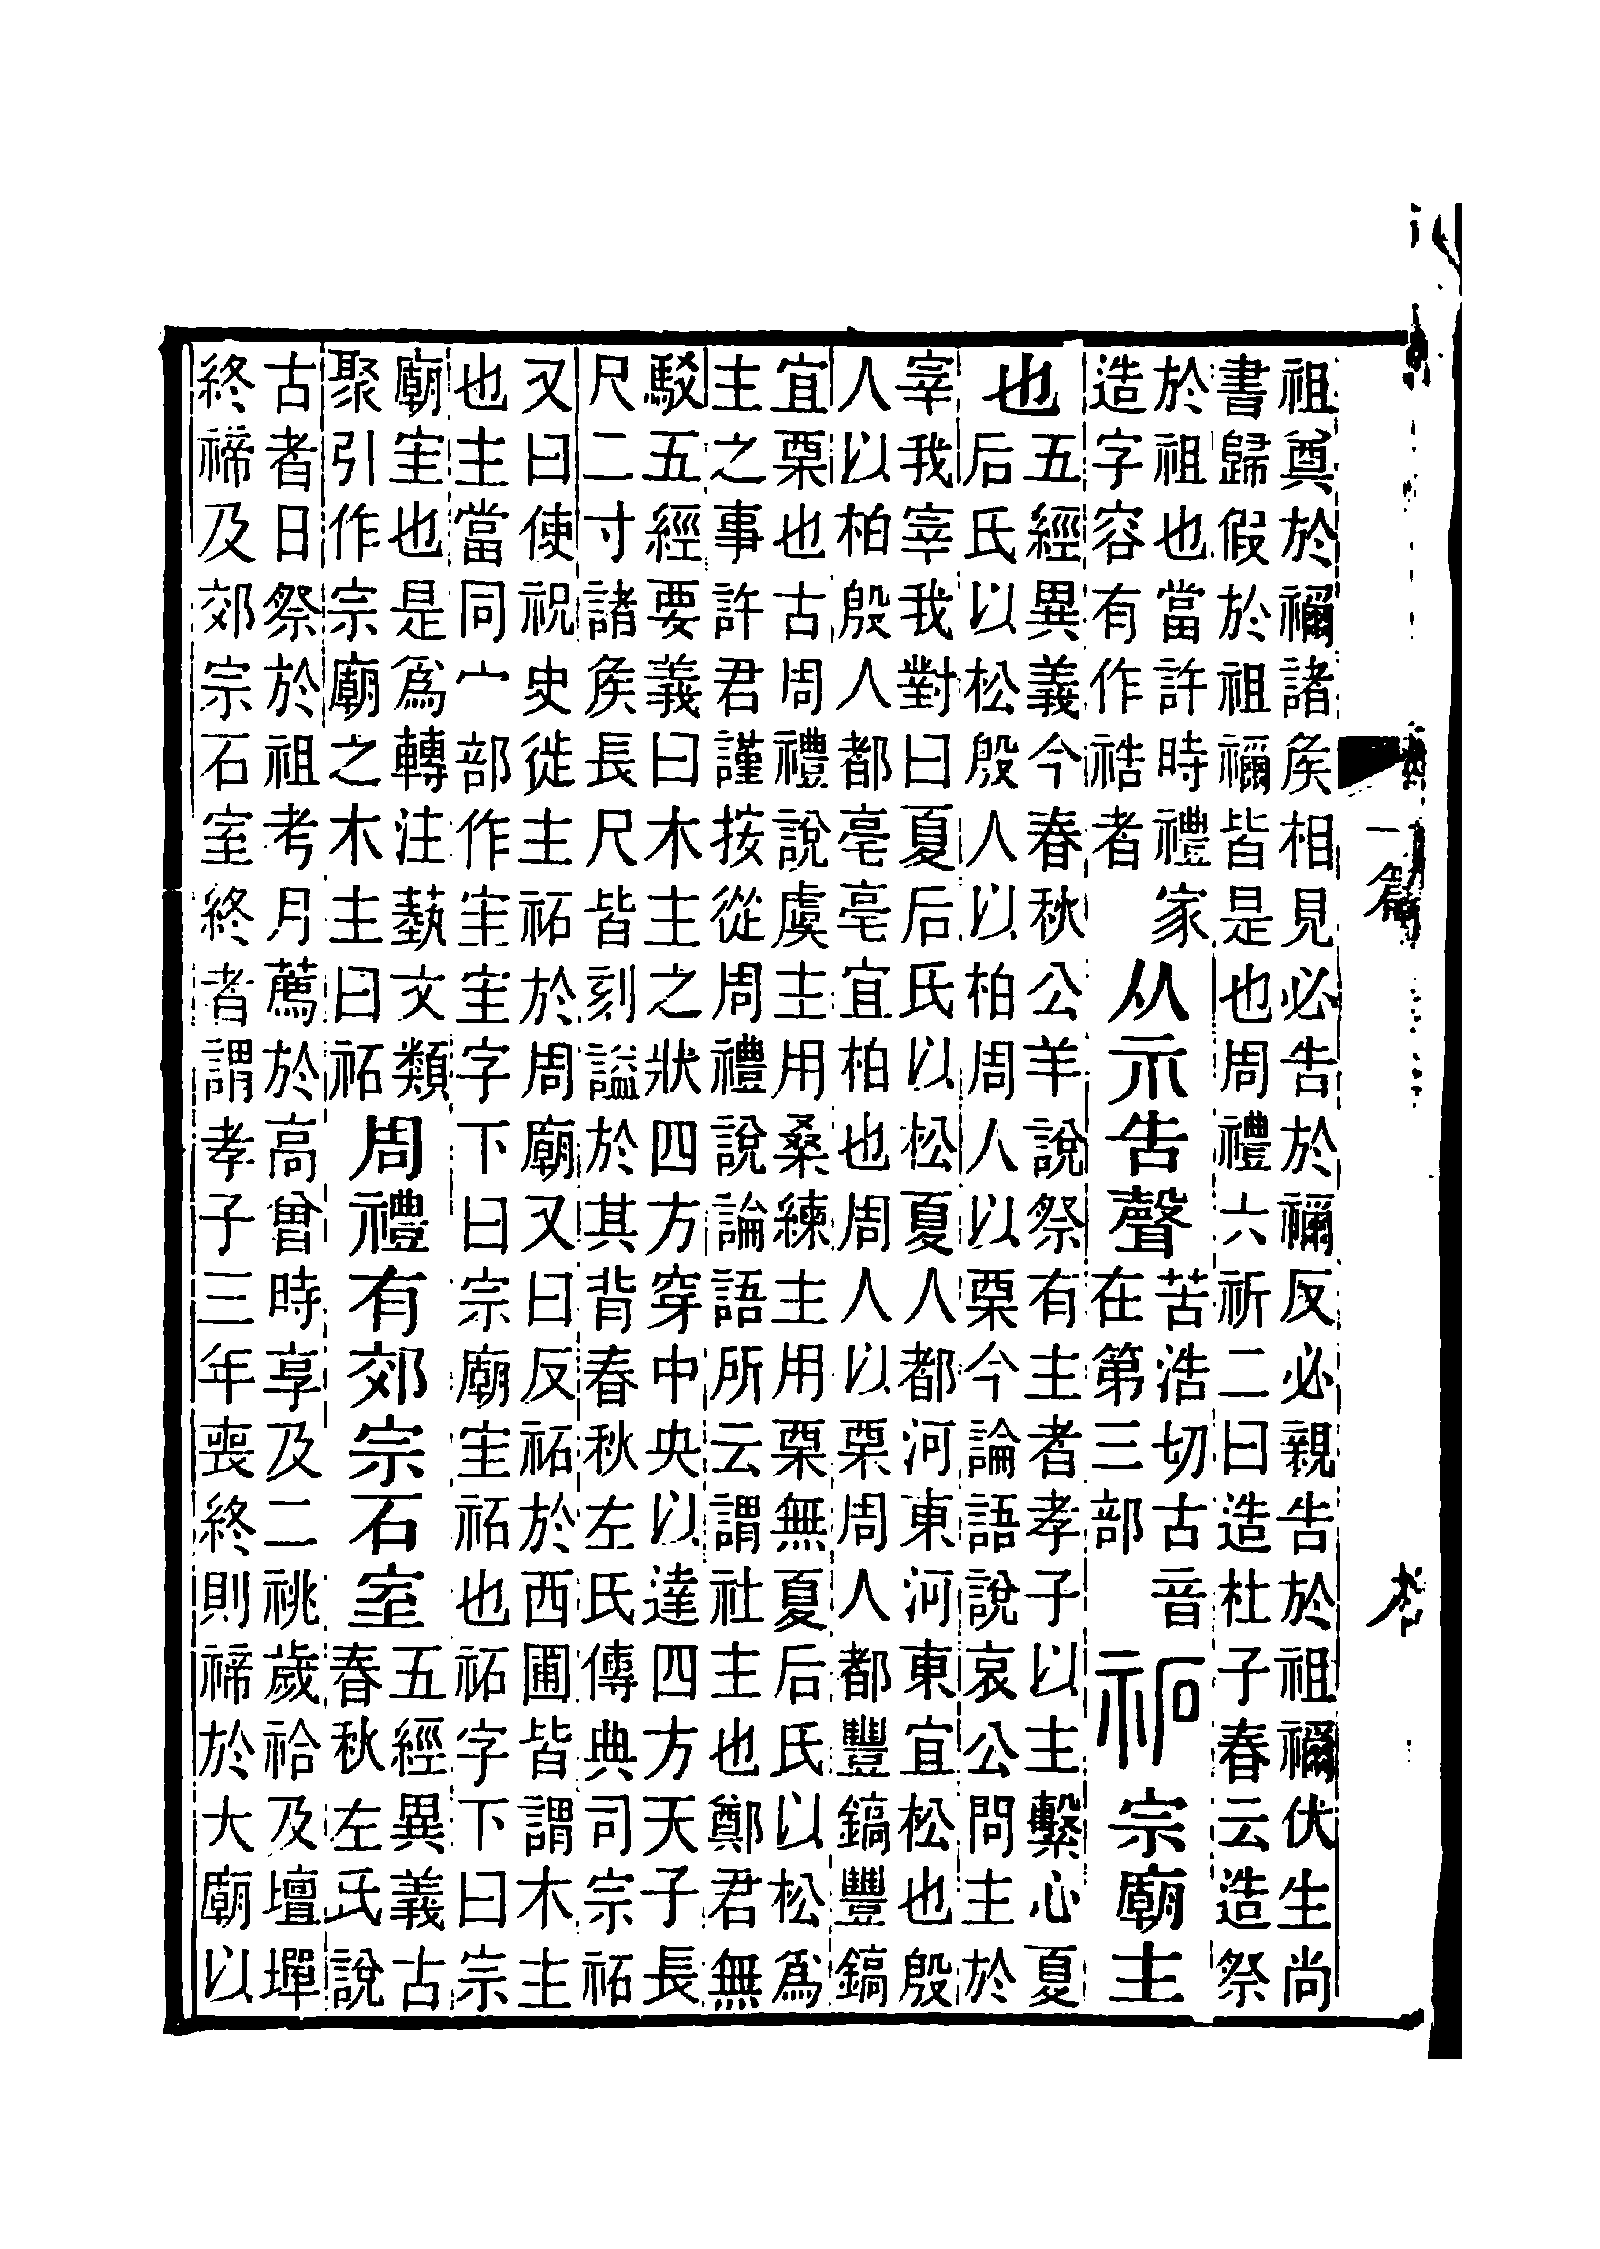 祖奠於禰諸矦相見必告於禰反必親告於祖禰伏生尚
書歸假於祖禰皆是也周禮六祈二曰造杜子春云造祭
於祖也當許時禮家
造字容有作祰者
从示告聲
苦浩切古音
在第三部
祏
宗廟主
也
五經異義今春秋公羊說祭有主者孝子以主繫心夏
后氏以松殷人以柏周人以栗今論語說哀公問主於
宰我宰我對曰夏后氏以松夏人都河東河東宜松也殷
人以柏殷人都亳亳宜柏也周人以栗周人都豐鎬豐鎬
宜栗也古周禮說虞主用桑練主用栗無夏后氏以松爲
主之事許君謹按從周禮說論語所云謂社主也鄭君無
駁五經要義曰木主之狀四方穿中央以達四方天子長
尺二寸諸矦長尺皆刻謚於其背春秋左氏傳典司宗祏
又曰使祝史徙主祏於周廟又曰反祏於西圃皆謂木主
也主當同宀部作宔宔字下曰宗廟宔祏也祏字下曰宗
廟宔也是爲轉注藝文類
聚引作宗廟之木主曰祏
周禮有郊宗石室
五經異義古
春秋左氏說
古者日祭於祖考月薦於高曾時享及二祧歲祫及壇墠
終禘及郊宗石室終者謂孝子三年喪終則禘於大廟以
一篇